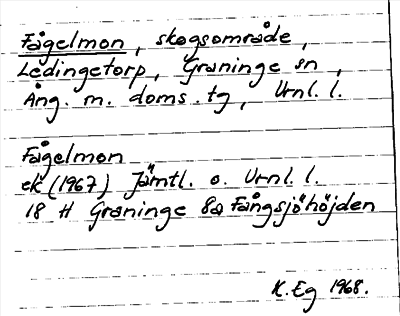 Fågelmon, skogsområde,
Ledingetorp, Graninge sn,
Ång. m. doms. tg, Vnl. l.
Fågelmon
ek (1967) Jämtl. o. Vnl. l.
18 H Graninge 8a Fångsjöhöjden
K. Eg 1968.